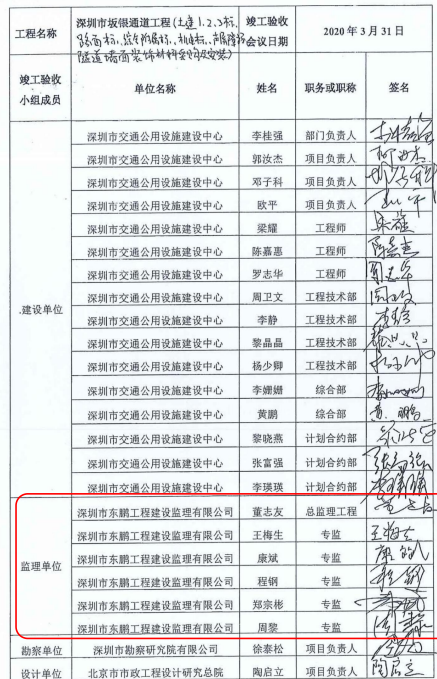 工程名称 深圳市坂银通道工程(土建1.2.3标、 竣工验收 2020年3月31日
路面标、综合附属标、机电标、声屏障标 会议日期
隧道墙面装饰材料采购及安装)
竣工验收小组成员 单位名称 姓名 职务或职称 签名
建设单位
深圳市交通公用设施建设中心 李桂强 部门负责人
深圳市交通公用设施建设中心 郭汝杰 项目负责人
深圳市交通公用设施建设中心 邓子科 项目负责人
深圳市交通公用设施建设中心 欧平 项目负责人
深圳市交通公用设施建设中心 梁耀 工程师
深圳市交通公用设施建设中心 陈嘉惠 工程师
深圳市交通公用设施建设中心 罗志华 工程师
深圳市交通公用设施建设中心 周卫文 工程技术部
深圳市交通公用设施建设中心 李静 工程技术部
深圳市交通公用设施建设中心 黎晶晶 工程技术部
深圳市交通公用设施建设中心 杨少卿 工程技术部
深圳市交通公用设施建设中心 李姗姗 综合部
深圳市交通公用设施建设中心 黄鹏 综合部
深圳市交通公用设施建设中心 黎晓燕 计划合约部
深圳市交通公用设施建设中心 张富强 计划合约部
深圳市交通公用设施建设中心 李瑛瑛 计划合约部
监理单位
深圳市东鹏工程建设监理有限公司 董志友 总监理工程
深圳市东鹏工程建设监理有限公司 王梅生 专监
深圳市东鹏工程建设监理有限公司 康斌 专监
深圳市东鹏工程建设监理有限公司 程钢 专监
深圳市东鹏工程建设监理有限公司 郑宗彬 专监
深圳市东鹏工程建设监理有限公司 周黎 专监
勘察单位 深圳市勘察研究院有限公司 徐泰松 项目负责人
设计单位 北京市市政工程设计研究总院 陶启立 项目负责人 陶启立